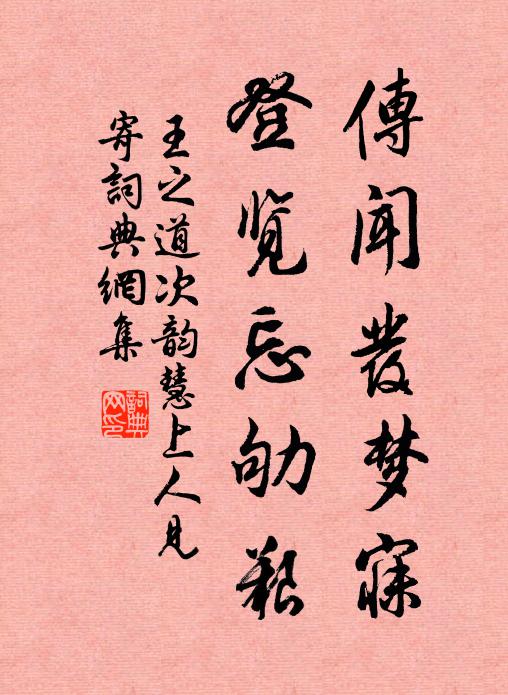 傳聞發梦寐
登览忘劬艱
王之道次韵慧上人見
寄詞典網集
詞典
网印